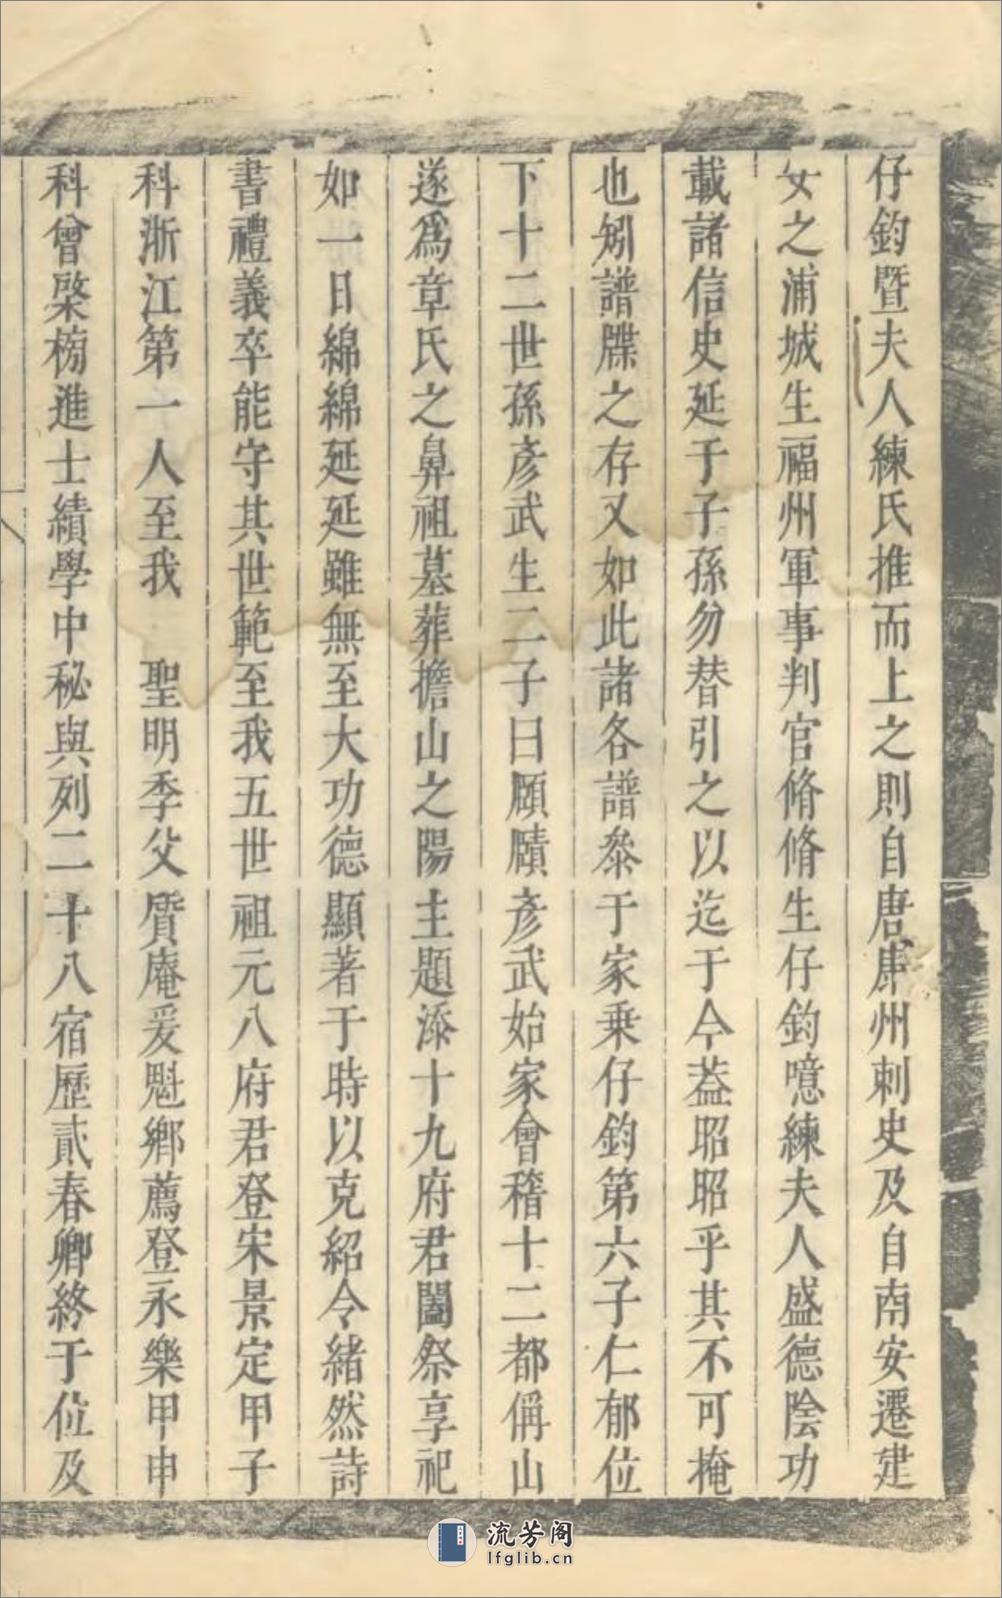 仔鈞暨夫人練氏推而上之則自唐康州刺史及自南安遷建
安之浦城生福州軍事判官脩脩生仔鈞噫練夫人盛德陰功
載諸信史延于子孫勿替引之以迄于今蓋昭昭乎其不可掩
也矧譜牒之存又如此諸各譜叅于家乗仔鈞第六子仁郁位
下十二世孫彥武生二子曰願賾彥武始家會稽十二都偁山
遂為章氏之鼻祖墓葬擔山之陽主題添十九府君闔祭享祀
如一日綿綿延延雖無至大功德顯著于時以克紹令緒然詩
書禮義卒能守其世範至我五世祖元八府君登宋景定甲子
科浙江第一人至我 聖明季父質庵爰魁鄉薦登永樂甲申
科曾棨榜進士績學中秘與列二十八宿歷貳春卿終于位及
流芳阁
lfglib.cn